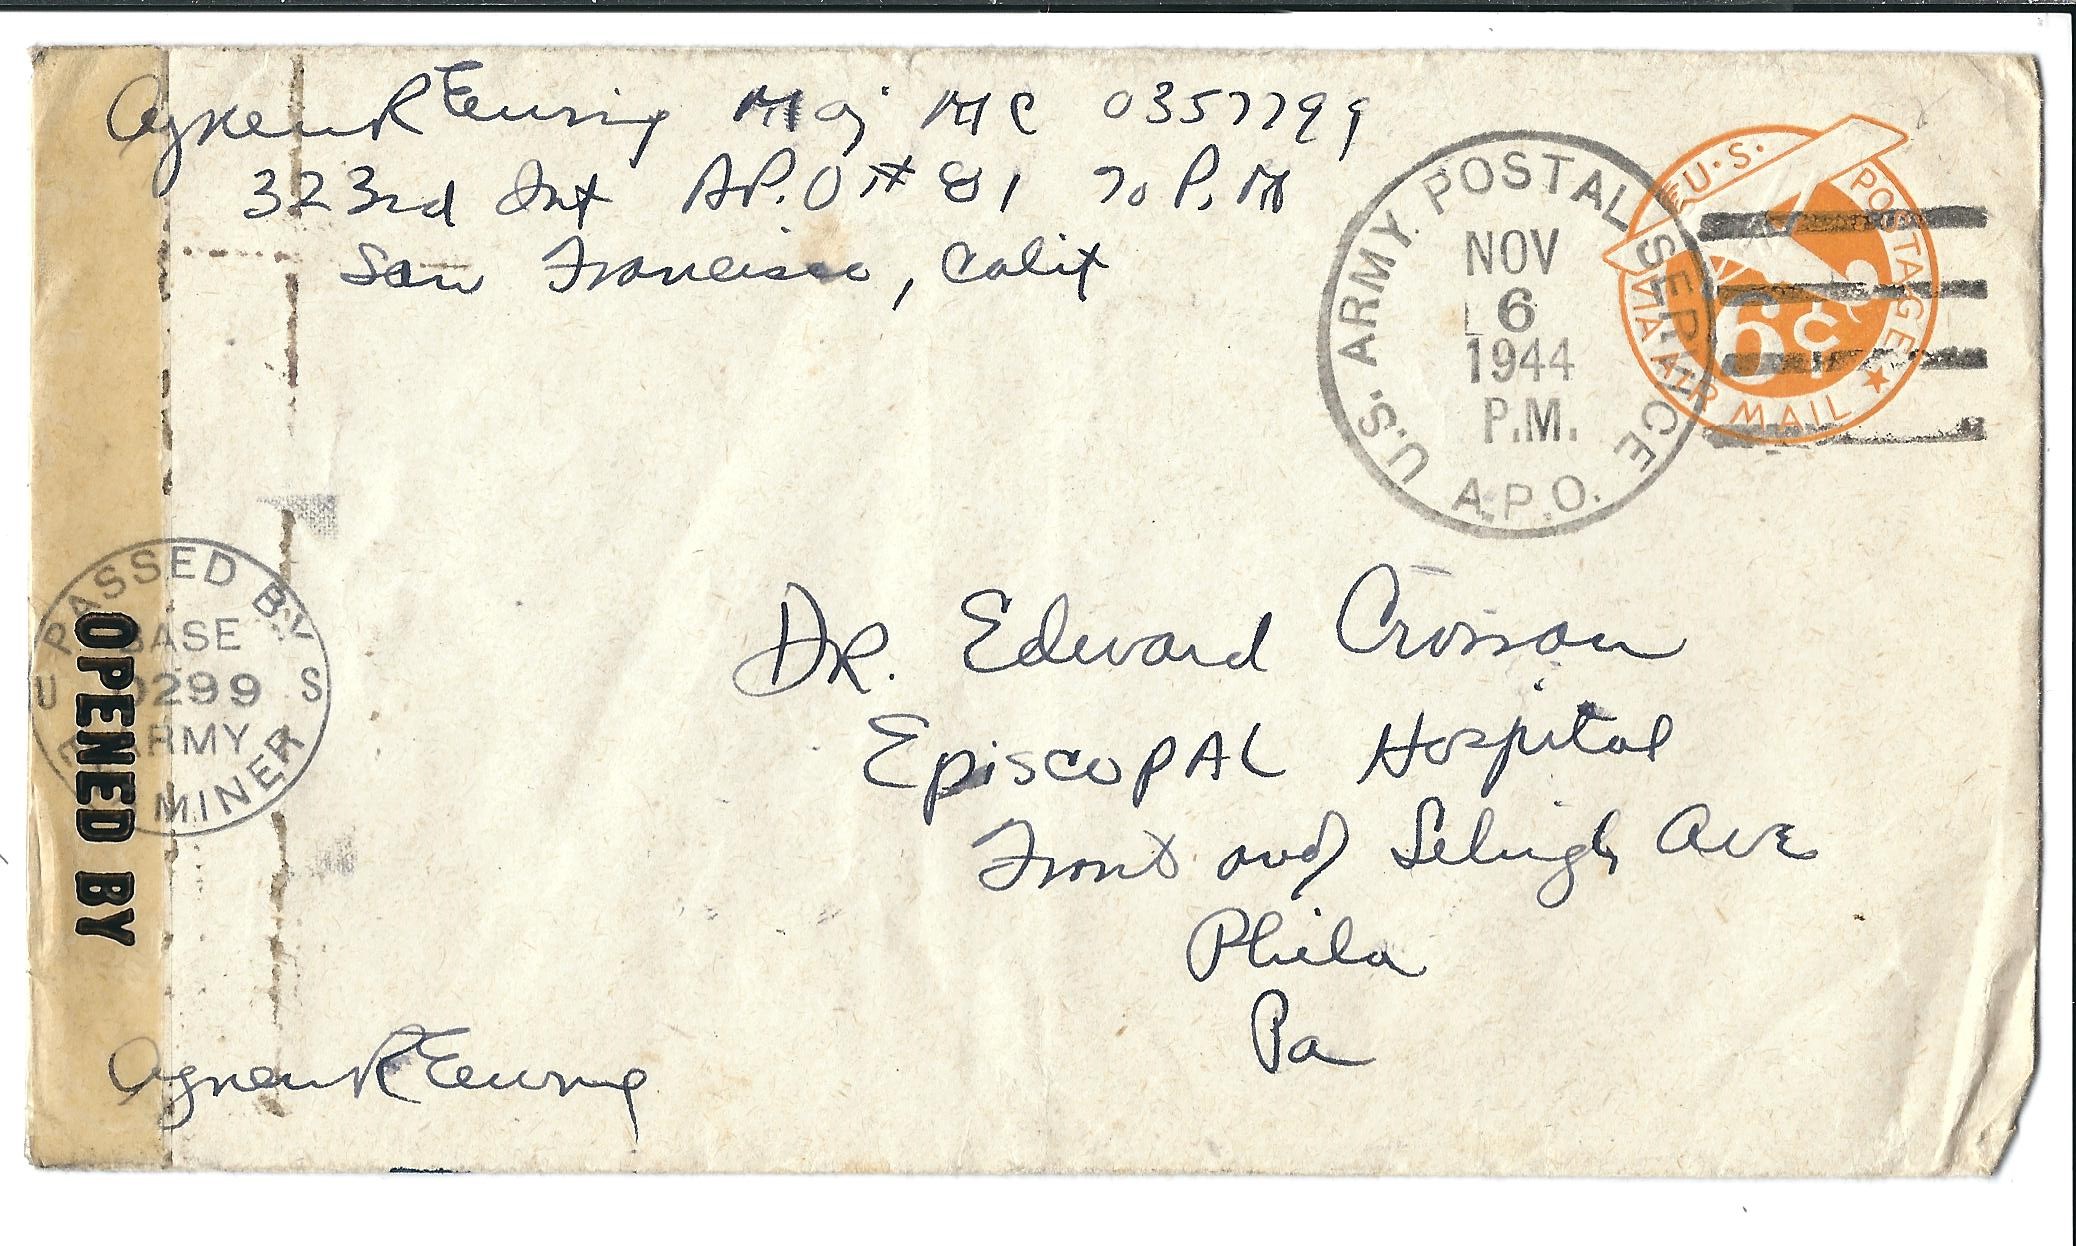 Agnew R Ewing Maj MC 0357799
323rd Inf A.P.O # 81 % P.M
San Francisco, Calif
U.S. ARMY. POSTAL SERVICE
A.P.O.
NOV
6
1944
P.M.
U.S. POSTAGE
VIA AIR MAIL
6¢
PASSED BY
BASE
U 0299 S
ARMY
EXAMINER
OPENED BY
DR. Edward Crossan
EpiscopAL Hospital
Front and Lehigh Ave
Phila
Pa
Agnew R Ewing